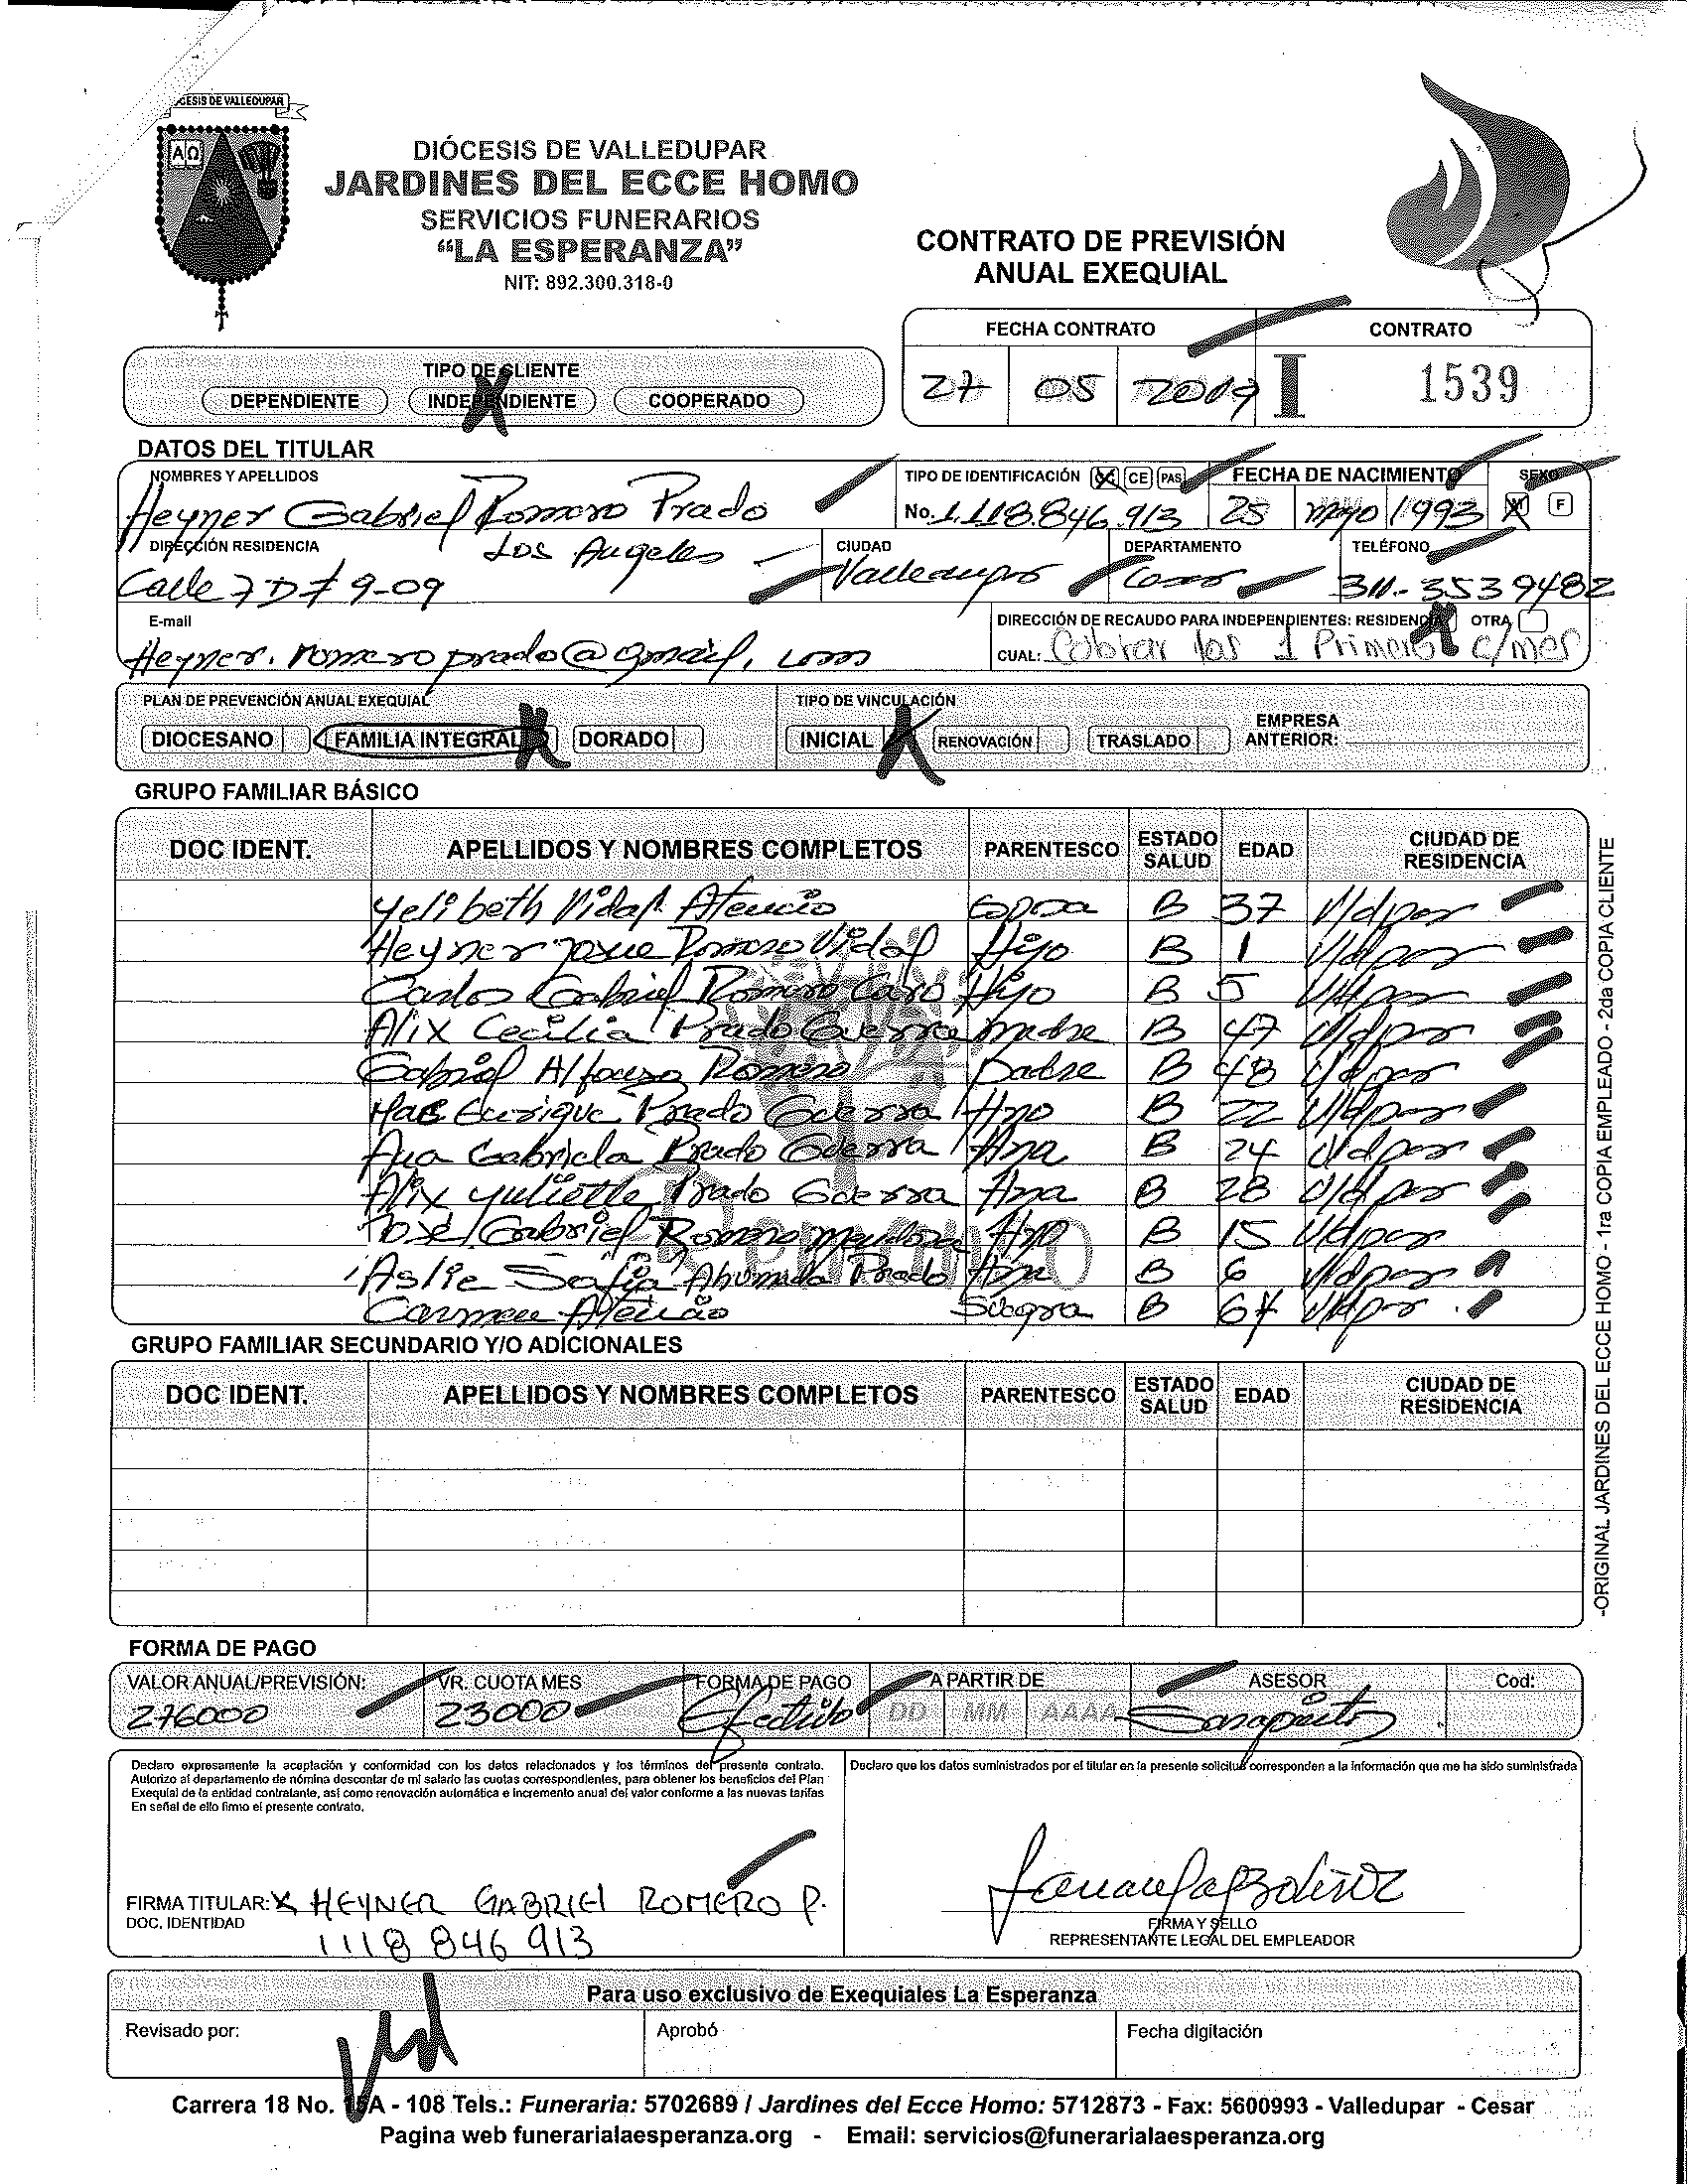 DIÓCESIS DE VALLEDUPAR
AΩ
DIÓCESIS DE VALLEDUPAR
JARDINES DEL ECCE HOMO
SERVICIOS FUNERARIOS
“LA ESPERANZA”
NIT: 892.300.318-0
CONTRATO DE PREVISIÓN
ANUAL EXEQUIAL
FECHA CONTRATO CONTRATO
27 05 2019 I 1539
TIPO DE CLIENTE
DEPENDIENTE INDEPENDIENTE X COOPERADO
DATOS DEL TITULAR
NOMBRES Y APELLIDOS TIPO DE IDENTIFICACIÓN CC CE PAS FECHA DE NACIMIENTO SEXO
Heyner Gabriel Romero Prado No. 1.118.846.913 25 mayo 1993 M F
DIRECCIÓN RESIDENCIA CIUDAD DEPARTAMENTO TELÉFONO
Los Angeles
Calle 7D # 9-09 Valledupar Cesar 311-3539482
E-mail DIRECCIÓN DE RECAUDO PARA INDEPENDIENTES: RESIDENCIA X OTRA
Heyner.romeroprado@gmail.com CUAL: Cobrar los 1 Primeros c/mes
PLAN DE PREVENCIÓN ANUAL EXEQUIAL TIPO DE VINCULACIÓN
DIOCESANO FAMILIA INTEGRAL X DORADO INICIAL X RENOVACIÓN TRASLADO EMPRESA ANTERIOR:
GRUPO FAMILIAR BÁSICO
DOC IDENT. APELLIDOS Y NOMBRES COMPLETOS PARENTESCO ESTADO SALUD EDAD CIUDAD DE RESIDENCIA
Yelibeth Vidal Atencio Esposa B 37 V/dpar
Heyner Josue Romero Vidal Hijo B 1 V/dpar
Carlos Gabriel Romero Caro Hijo B 5 V/dpar
Alix Cecilia Prado Guerra madre B 47 V/dpar
Gabriel Alfonso Romero padre B 48 V/dpar
Enrique Prado Guerra Hno B 22 V/dpar
Ana Gabriela Prado Guerra Hna B 24 V/dpar
Alix Yuliette Prado Guerra Hna B 28 V/dpar
Jose Gabriel Romero Mendoza Hno B 15 V/dpar
Aslie Sofia Ahumada Prado Hna B 6 V/dpar
Carmen Atencio Suegra B 67 V/dpar
GRUPO FAMILIAR SECUNDARIO Y/O ADICIONALES
DOC IDENT. APELLIDOS Y NOMBRES COMPLETOS PARENTESCO ESTADO SALUD EDAD CIUDAD DE RESIDENCIA
FORMA DE PAGO
VALOR ANUAL/PREVISIÓN: VR. CUOTA MES FORMA DE PAGO A PARTIR DE ASESOR Cod:
276000 23000 Efectivo DD MM AAAA
Declaro expresamente la aceptación y conformidad con los datos relacionados y los términos del presente contrato.
Autorizo al departamento de nómina descontar de mi salario las cuotas correspondientes, para obtener los beneficios del Plan
Exequial de la entidad contratante, así como renovación automática e incremento anual del valor conforme a las nuevas tarifas
En señal de ello firmo el presente contrato.
Declaro que los datos suministrados por el titular en la presente solicitud corresponden a la información que me ha sido suministrada
FIRMA TITULAR: X HEYNER GABRIEL ROMERO P.
DOC. IDENTIDAD
1118 846 913
FIRMA Y SELLO
REPRESENTANTE LEGAL DEL EMPLEADOR
Para uso exclusivo de Exequiales La Esperanza
Revisado por: Aprobó Fecha digitación
Carrera 18 No. 15A - 108 Tels.: Funeraria: 5702689 / Jardines del Ecce Homo: 5712873 - Fax: 5600993 - Valledupar - Cesar
Pagina web funerarialaesperanza.org - Email: servicios@funerarialaesperanza.org
-ORIGINAL JARDINES DEL ECCE HOMO - 1ra COPIA EMPLEADO - 2da COPIA CLIENTE